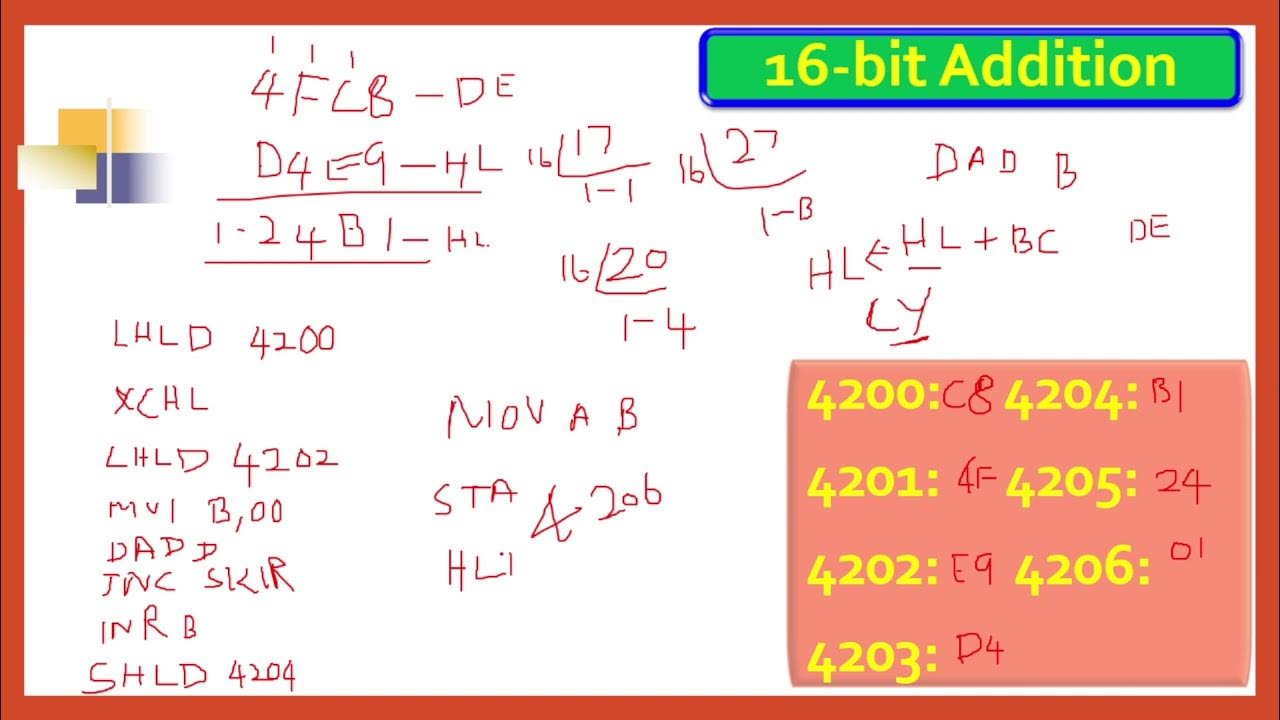 16-bit Addition
1 1 1
4FC8 - DE
D4E9 - HL
1-24B1 - HL
16 17
1-1
16 27
1-B
16 20
1-4
DAD B
HL ← HL + BC DE
CY
LHLD 4200
XCHL
LHLD 4202
MVI B,00
DAD D
JNC SKIR
INR B
SHLD 4204
MOV A B
STA 4206
HLT
4200: C8 4204: B1
4201: 4F 4205: 24
4202: E9 4206: 01
4203: D4